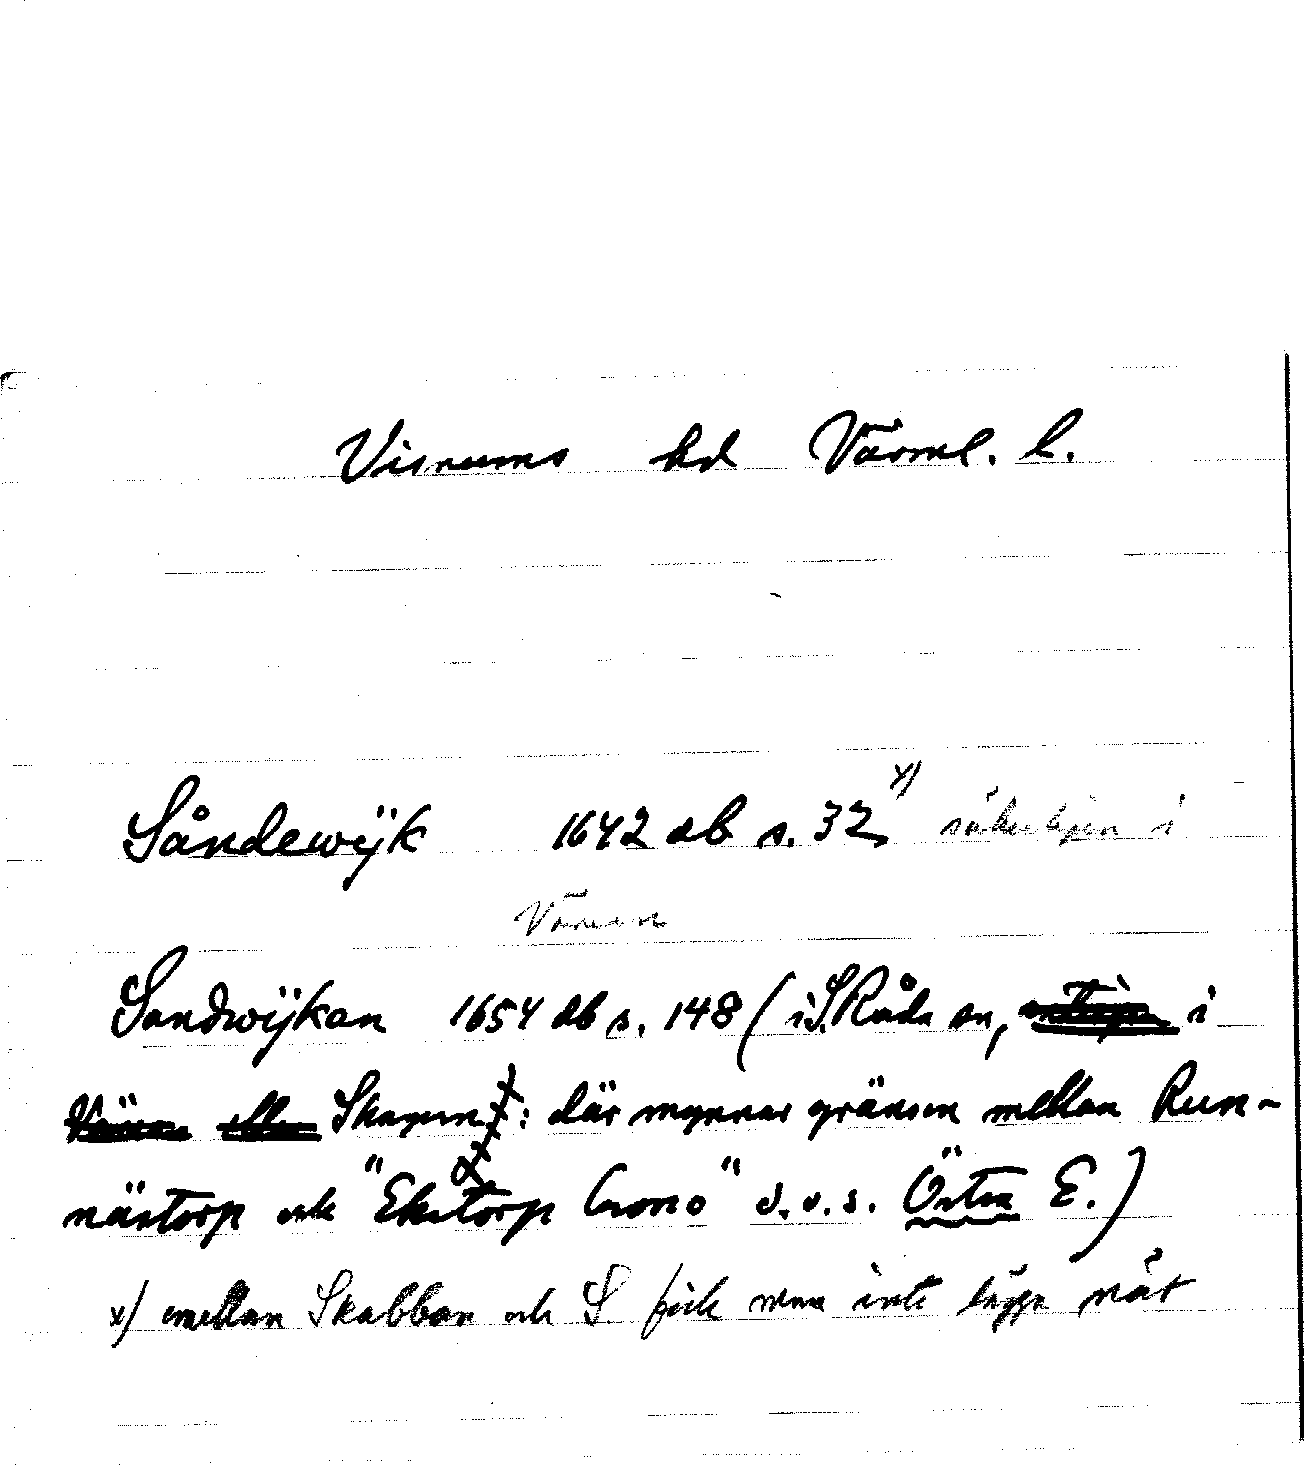 Visnums hd Värml. l.
Såndewÿk 1642 db s. 32 x) säkerligen i
Vänern
Sandwÿkan 1654 db s. 148 (i S. Råda sn, i
Skagern: där mynnar gränsen mellan Run-
närtorp och "Ekstorp Crono" d.v.s. Östra E.)
x) mellan Skabban och S fick man inte lägga nät